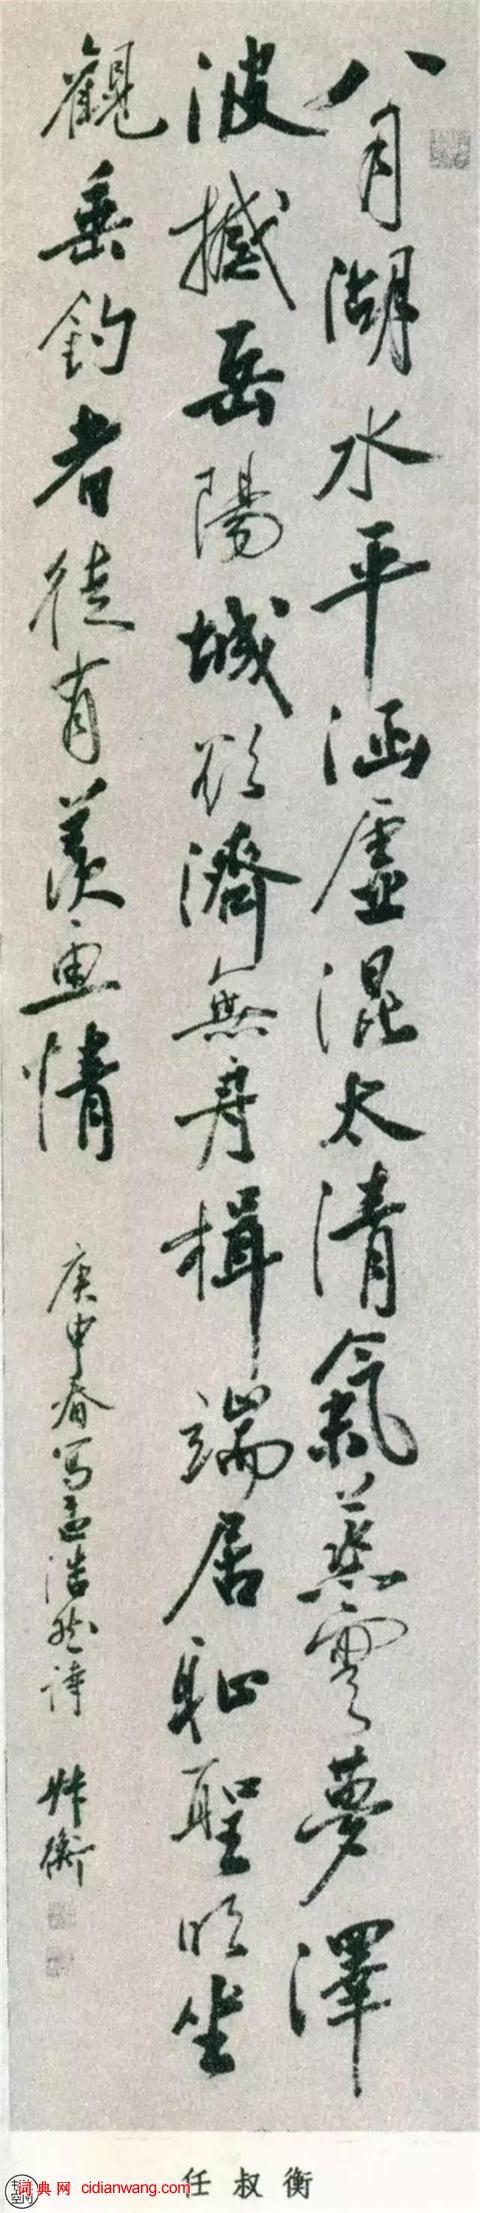 八月湖水平涵虛混太清氣蒸雲夢澤
波撼岳陽城欲濟無舟楫端居耻聖明坐
觀垂釣者徒有羨魚情
庚申春写孟浩然詩 叔衡
任叔衡
词典网 cidianwang.com